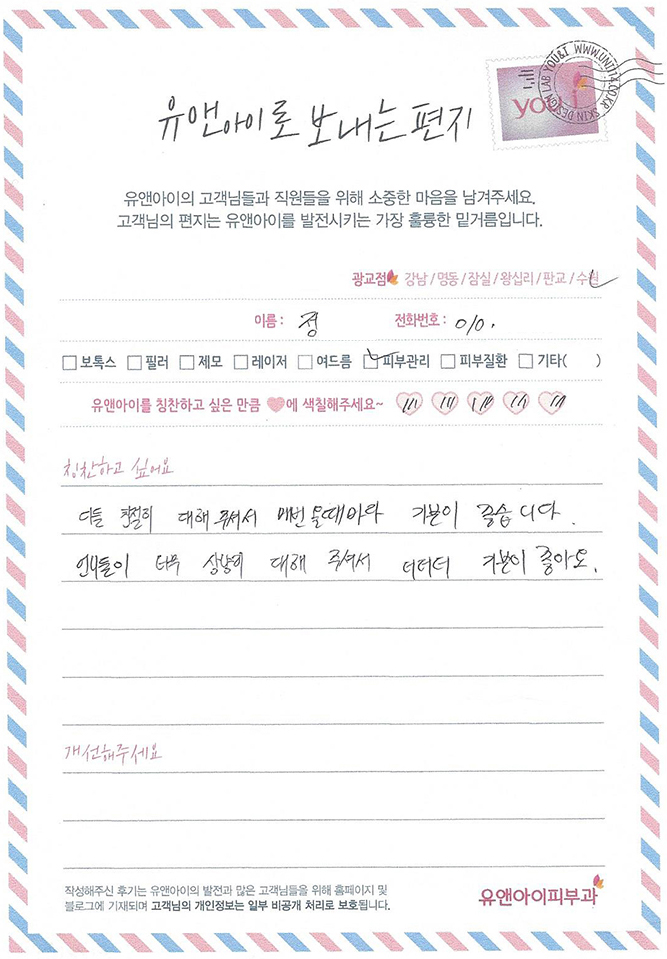 유앤아이로 보내는 편지
you i
SKIN DESIGN LAB YOU&I WWW.UNI114.CO.KR
유앤아이의 고객님들과 직원들을 위해 소중한 마음을 남겨주세요.
고객님의 편지는 유앤아이를 발전시키는 가장 훌륭한 밑거름입니다.
광교점 강남 / 명동 / 잠실 / 왕십리 / 판교 / 수원
이름 : 정 전화번호 : 010.
보톡스 필러 제모 레이저 여드름 피부관리 피부질환 기타( )
유앤아이를 칭찬하고 싶은 만큼 에 색칠해주세요~
칭찬하고 싶어요
다들 친절히 대해 주셔서 매번 올때마다 기분이 좋습니다.
언니들이 너무 상냥히 대해 주셔서 더더더 기분이 좋아요.
개선해주세요
작성해주신 후기는 유앤아이의 발전과 많은 고객님들을 위해 홈페이지 및
블로그에 기재되며 고객님의 개인정보는 일부 비공개 처리로 보호됩니다.
유앤아이피부과